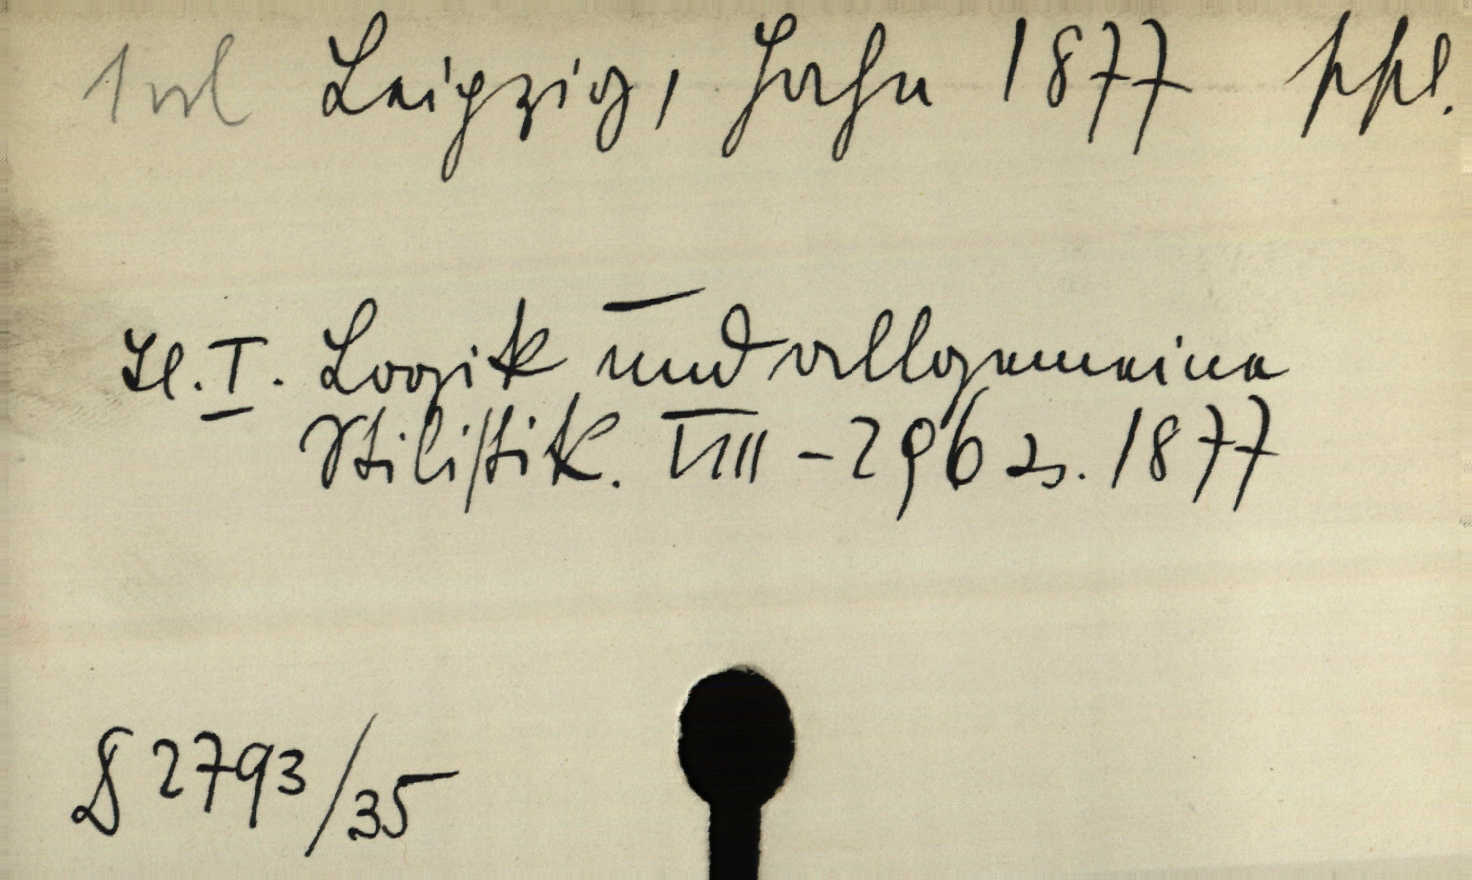 1 vol Leipzig, Hahn 1877 ppl.
Tl. I. Logik und allgemeine
Stilistik. VIII - 296 S. 1877
2793/35